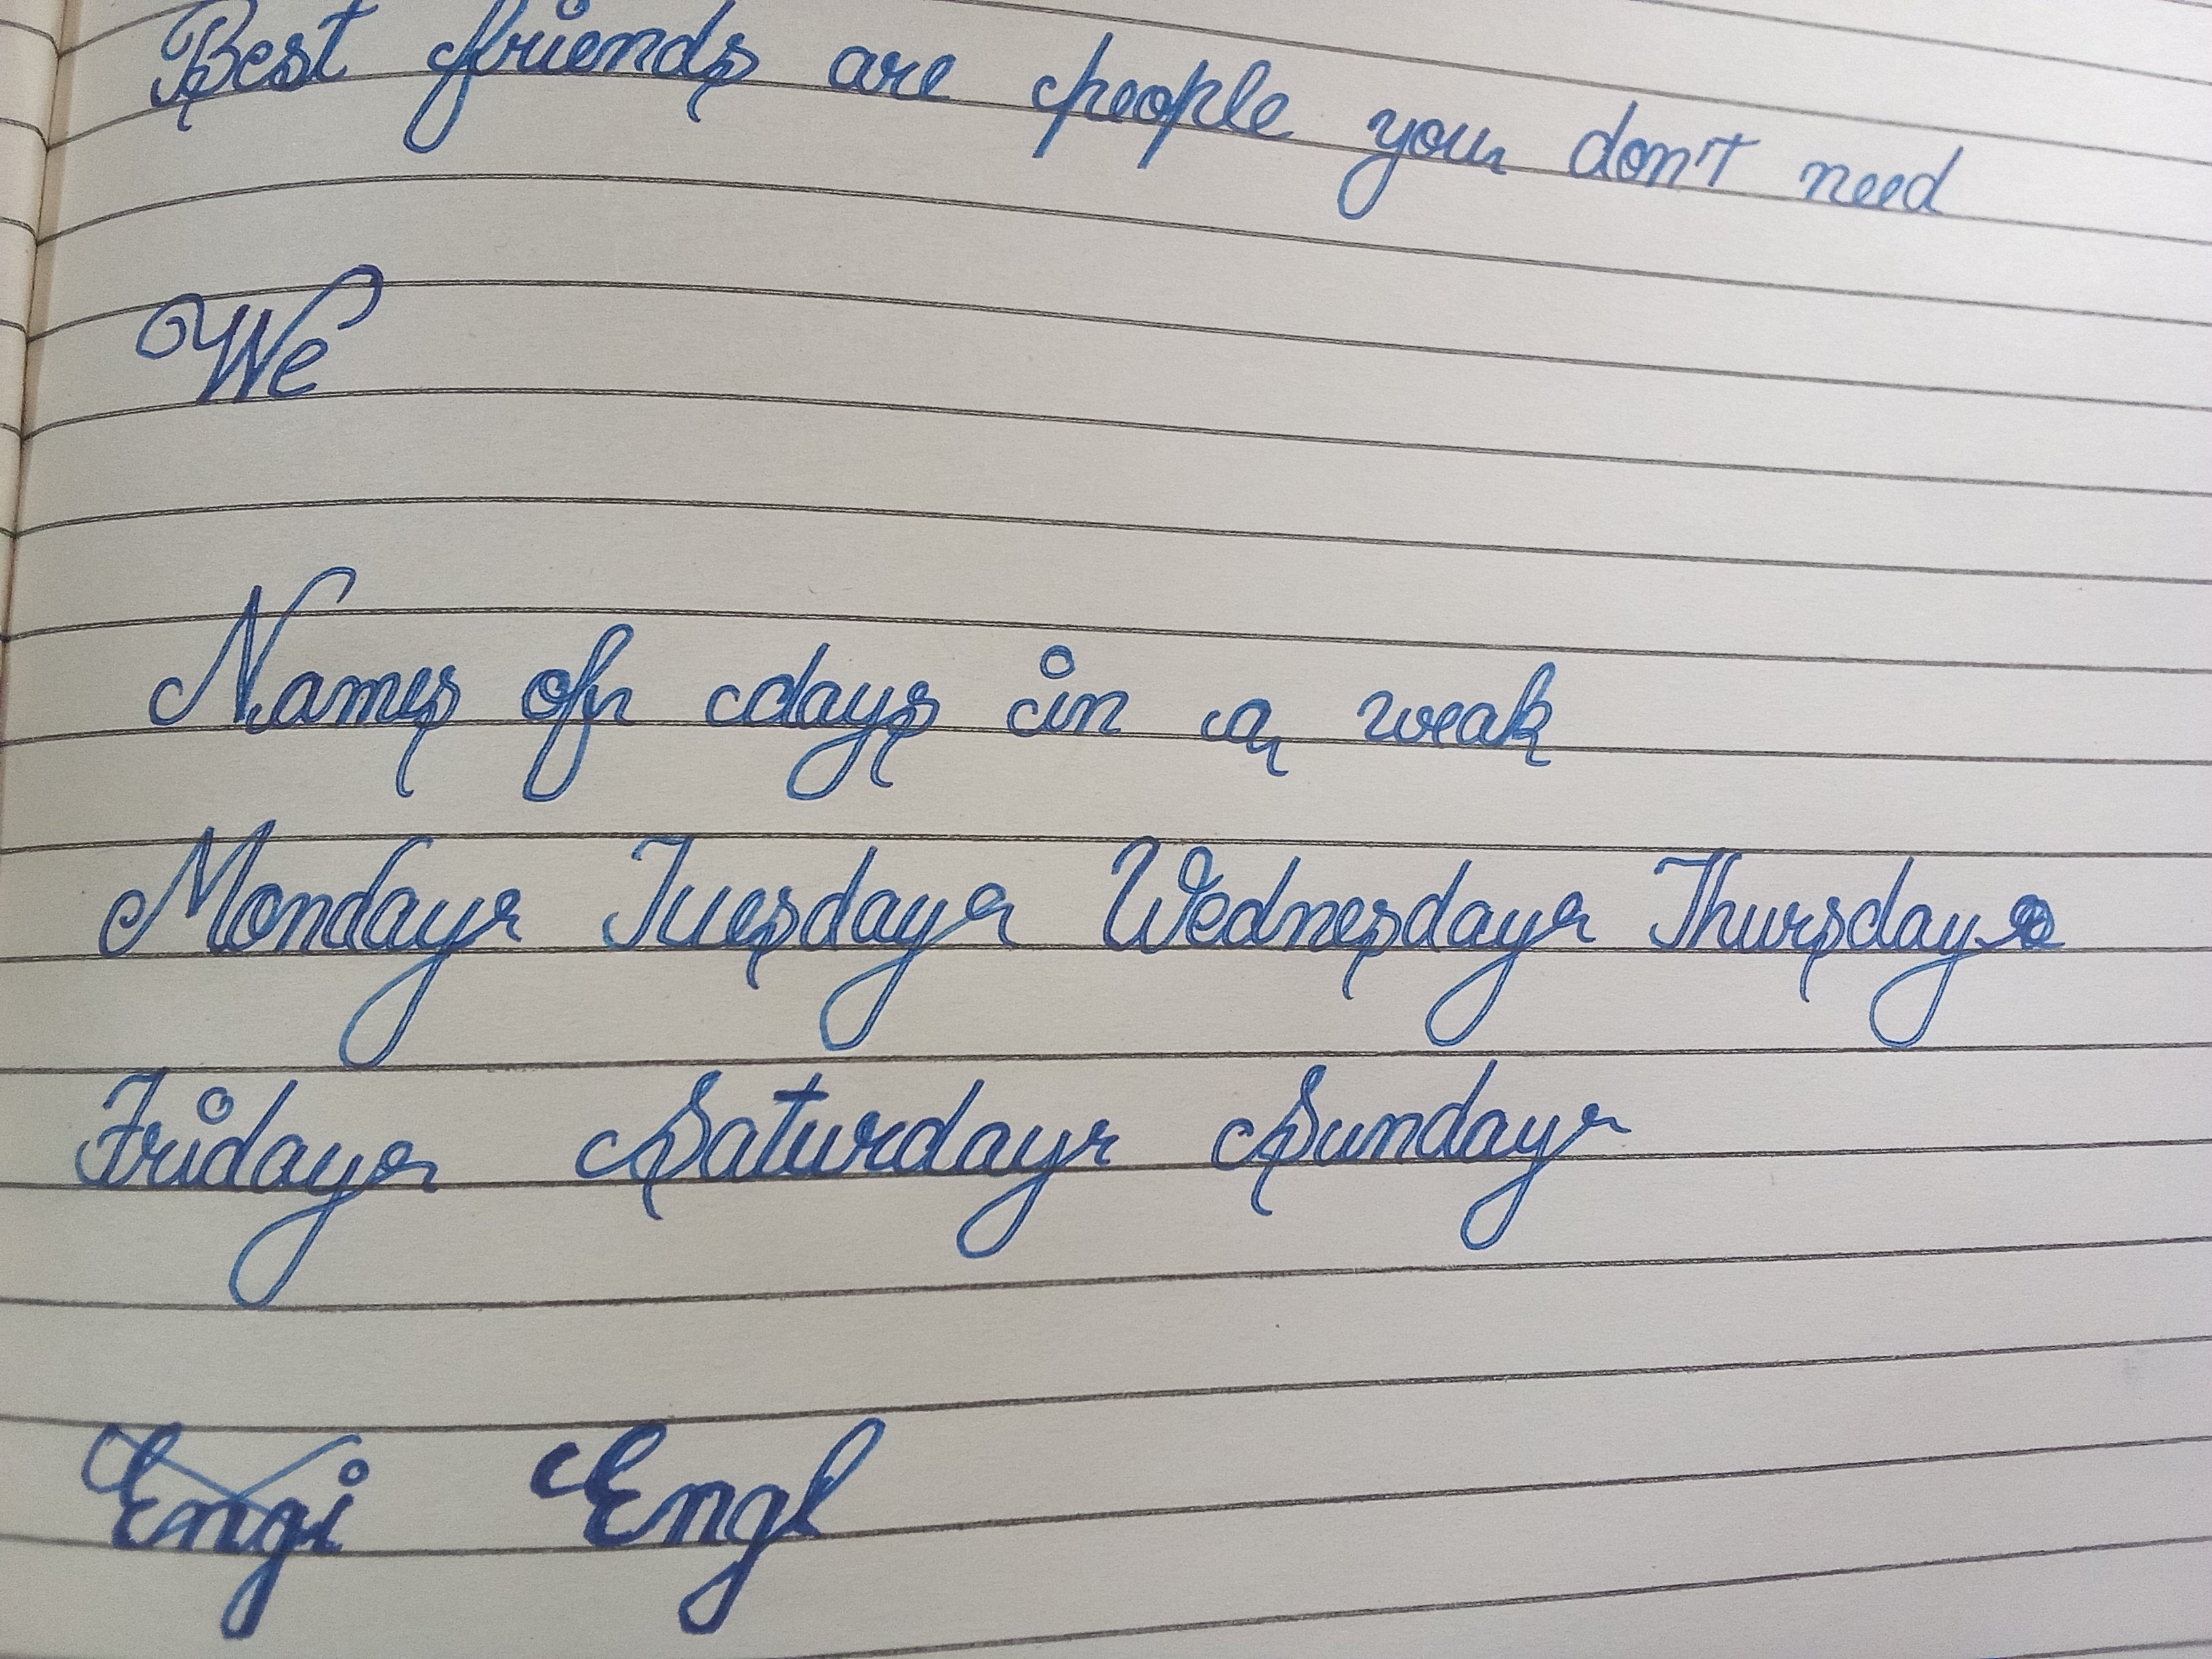 Best friends are people you don't need
We
Names of days in a weak
Monday Tuesday Wednesday Thursday
Friday Saturday Sunday
Engi Engl